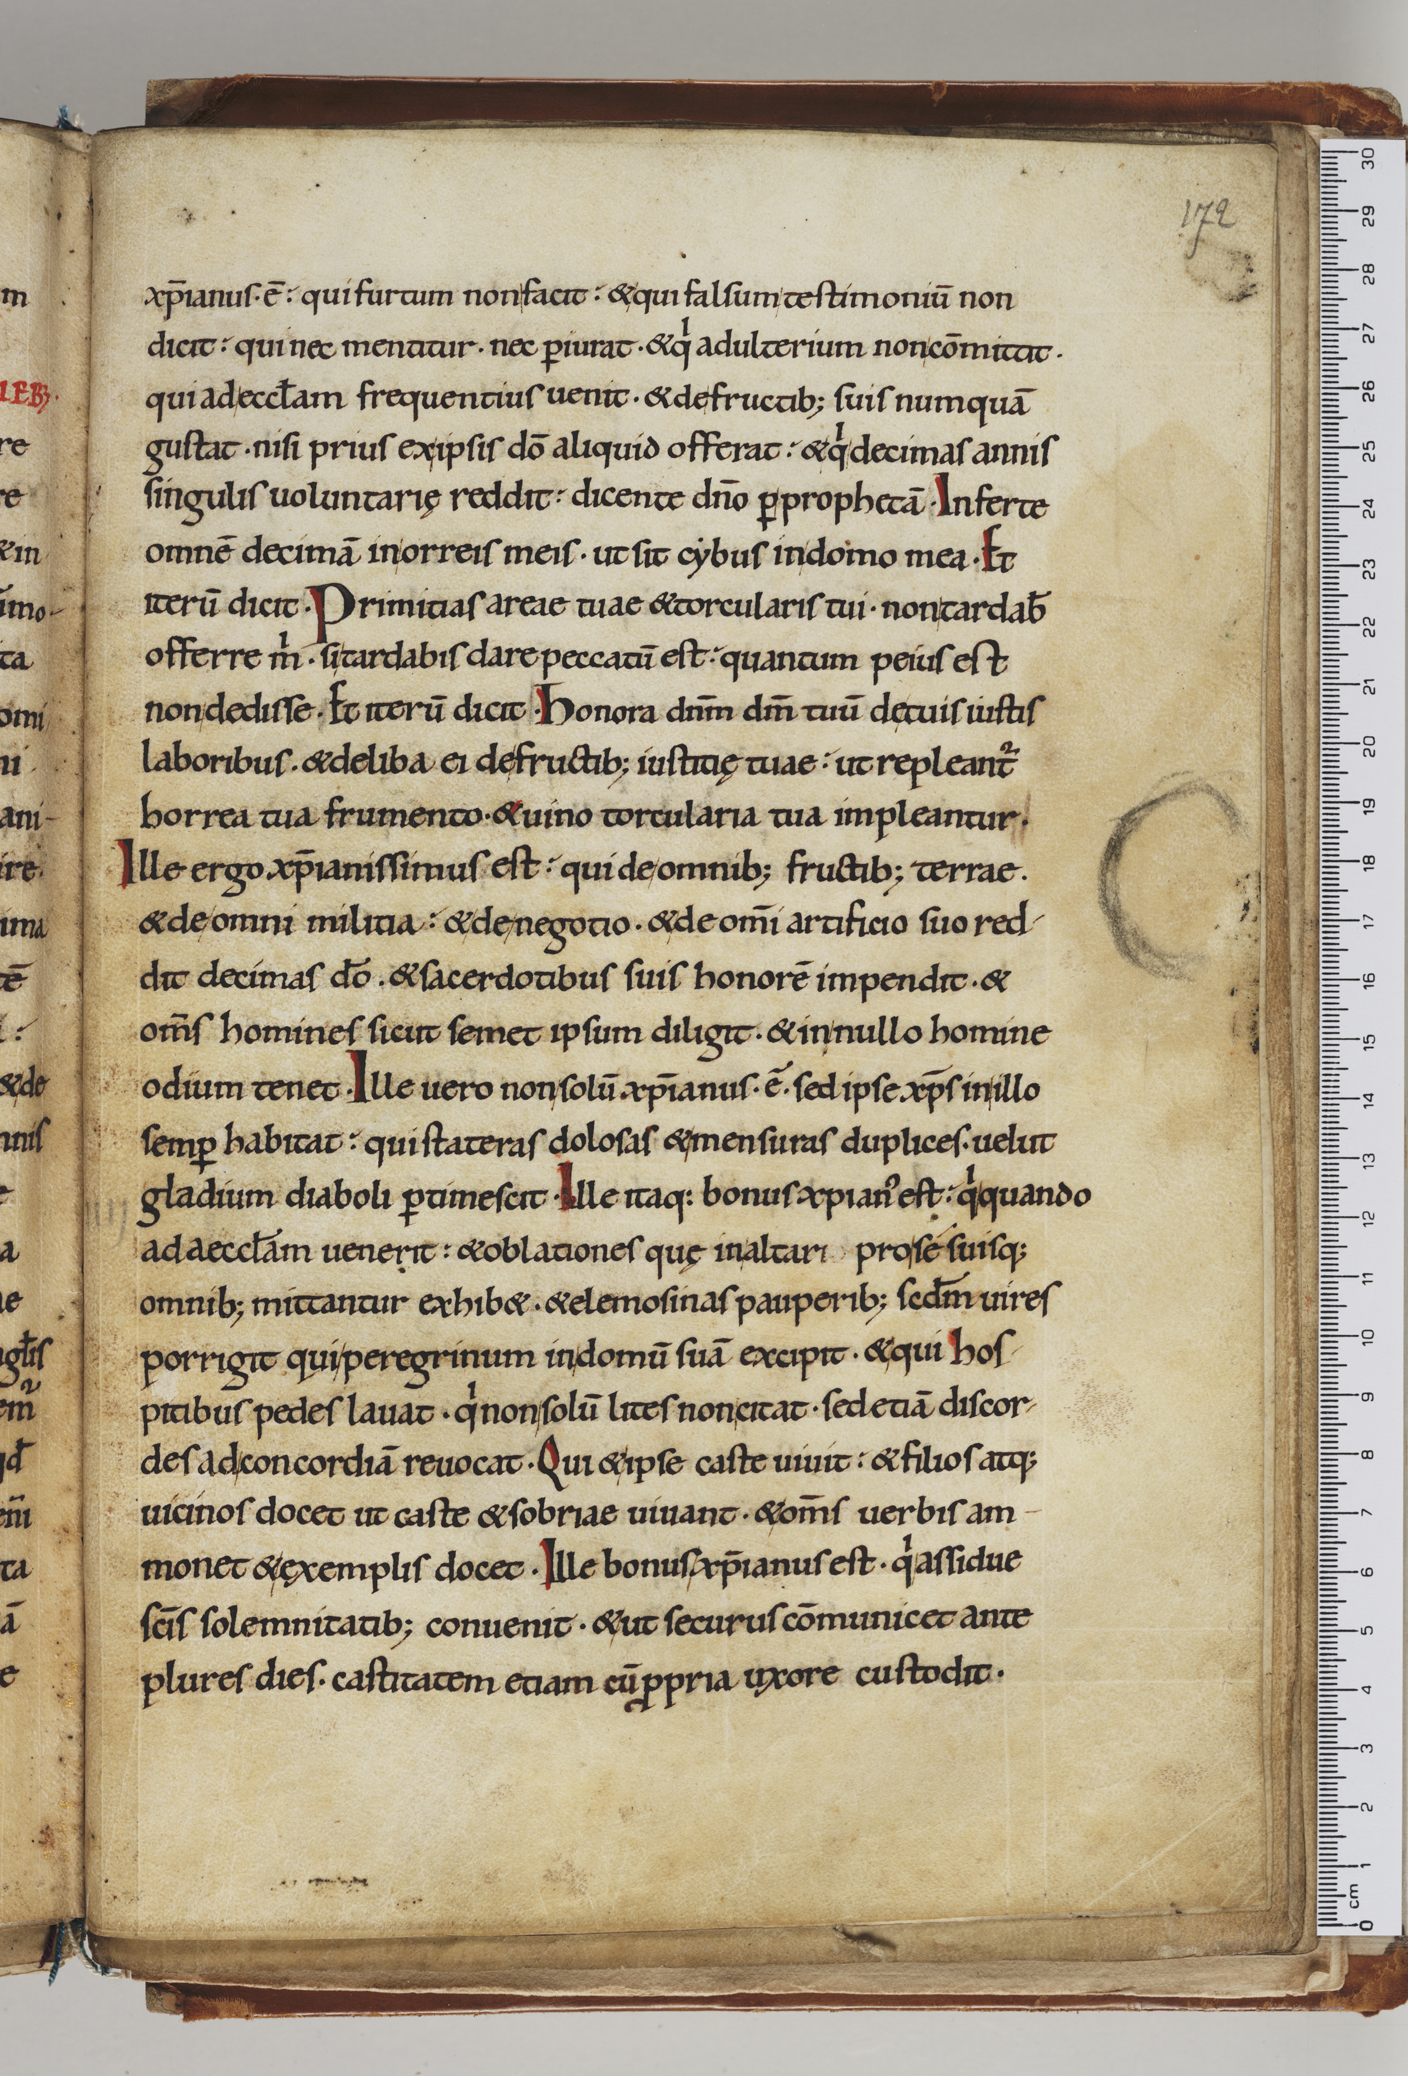 172
xp̄ianus·ē: qui furtum non facit: & qui falsum testimoniū non
dicit: qui nec mentitur· nec ꝑiurat· & qͥ adulterium non cōmittit·
qui ad eccƚam frequentius uenit· & de fructib; suis numquā
gustat· nisi prius ex ipsis dō aliquid offerat: & qͥ decimas annis
singulis uoluntarię reddit: dicente dn̄o ꝑ prophetā· Inferte
omnē decimā in orreis meis· ut sit cẏbus in domo mea· Et
iterū dicit· Primitias areae tuae & torcularis tui· non tardab̄
offerre mͥ· si tardabis dare peccatū est: quantum peius est
non dedisse· Et iterū dicit· Honora dn̄m dm̄ tuū de tuis iustis
laboribus· & deliba ei de fructib; iustitię tuae: ut repleant᷑
horrea tua frumento· & uino torcularia tua impleantur·
Ille ergo xp̄ianissimus est: qui de omnib; fructib; terrae·
& de omni militia: & de negotio· & de om̄i artificio suo red-
dit decimas dō· & sacerdotibus suis honorē impendit· &
om̄s homines sicut semet ipsum diligit· & in nullo homine
odium tenet· Ille uero non solū xp̄ianus·ē· sed ipse xp̄s in illo
semꝑ habitat: qui stateras dolosas & mensuras duplices· uelut
gladium diaboli ꝑtimescit· Ille itaq: bonus xpianꝰ est: qͥ quando
ad aeccƚam uenerit: & oblationes quę in altari pro se suisq;
omnib; mittantur exhib&· & elemosinas pauperib; scdm̄ uires
porrigit qui peregrinum in domū suā excipit· & qui hos-
pitibus pedes lauat· qͥ non solū lites non citat· sed etiā discor-
des ad concordiā reuocat· Qui & ipse caste uiuit: & filios atq;
uicinos docet ut caste & sobriae uiuant· & om̄s uerbis am-
monet & exemplis docet· Ille bonus xp̄ianus est· qͥ assidue
sc̄is solemnitatib; conuenit· & ut securus cōmunicet ante
plures dies· castitatem etiam cū ꝓpria uxore custodit·